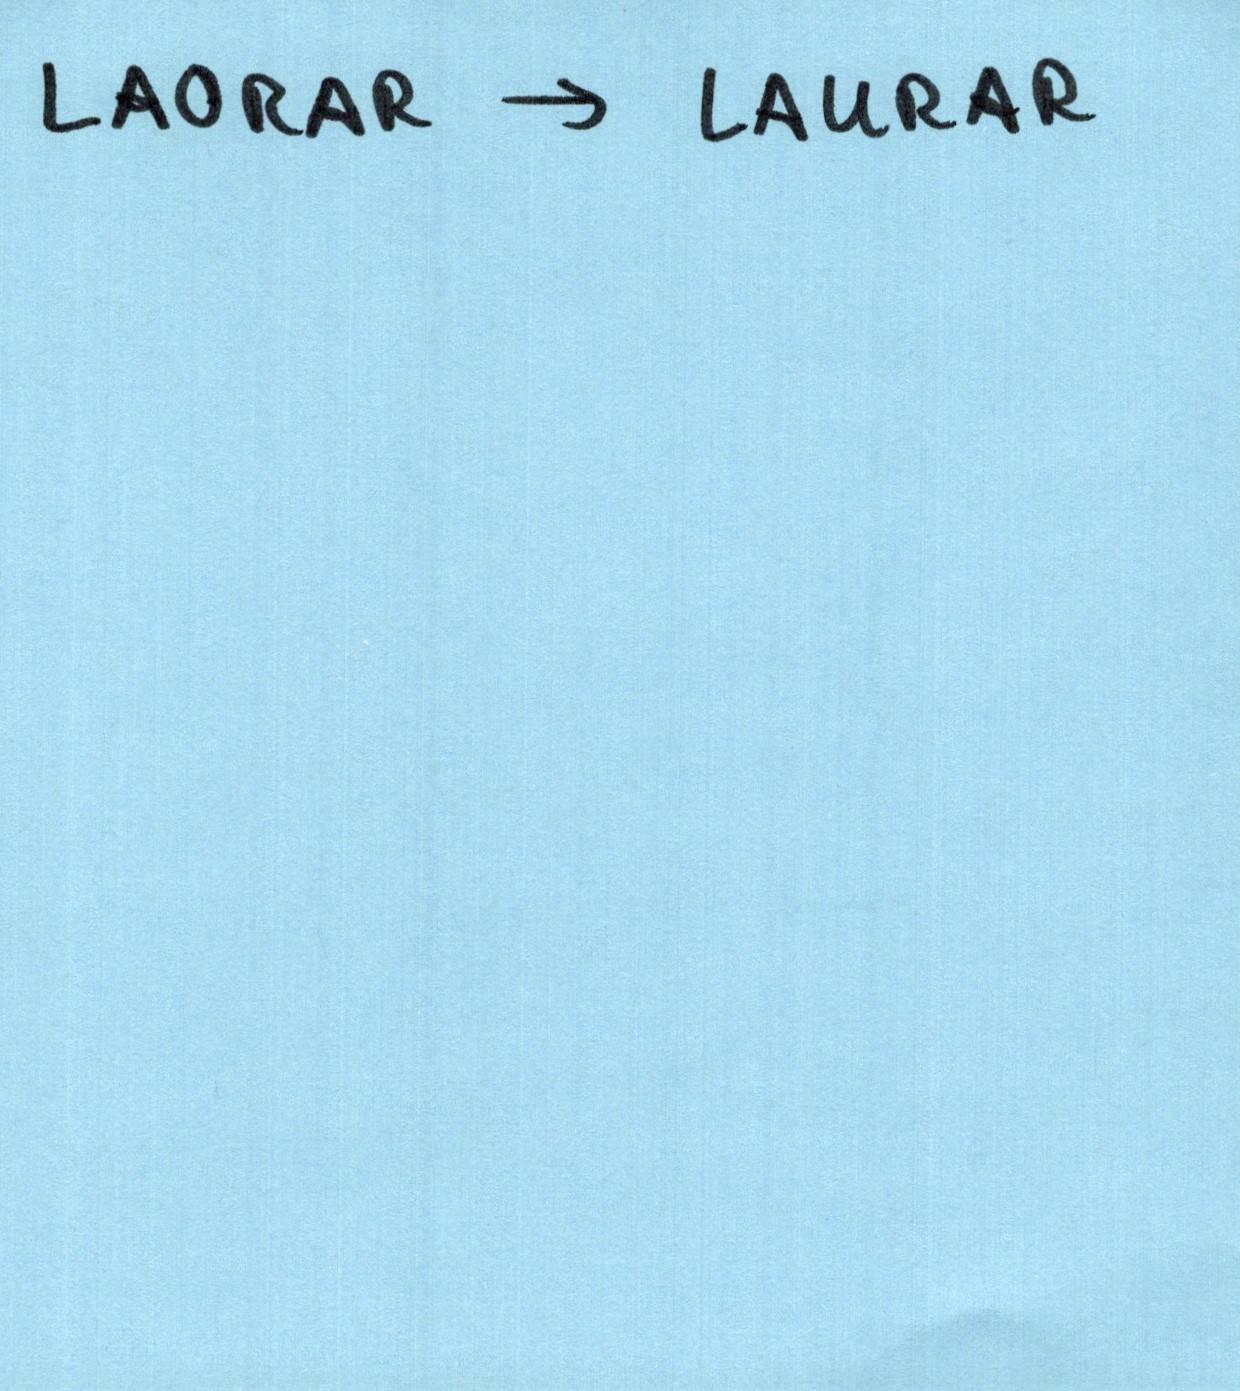 LAORAR → LAURAR